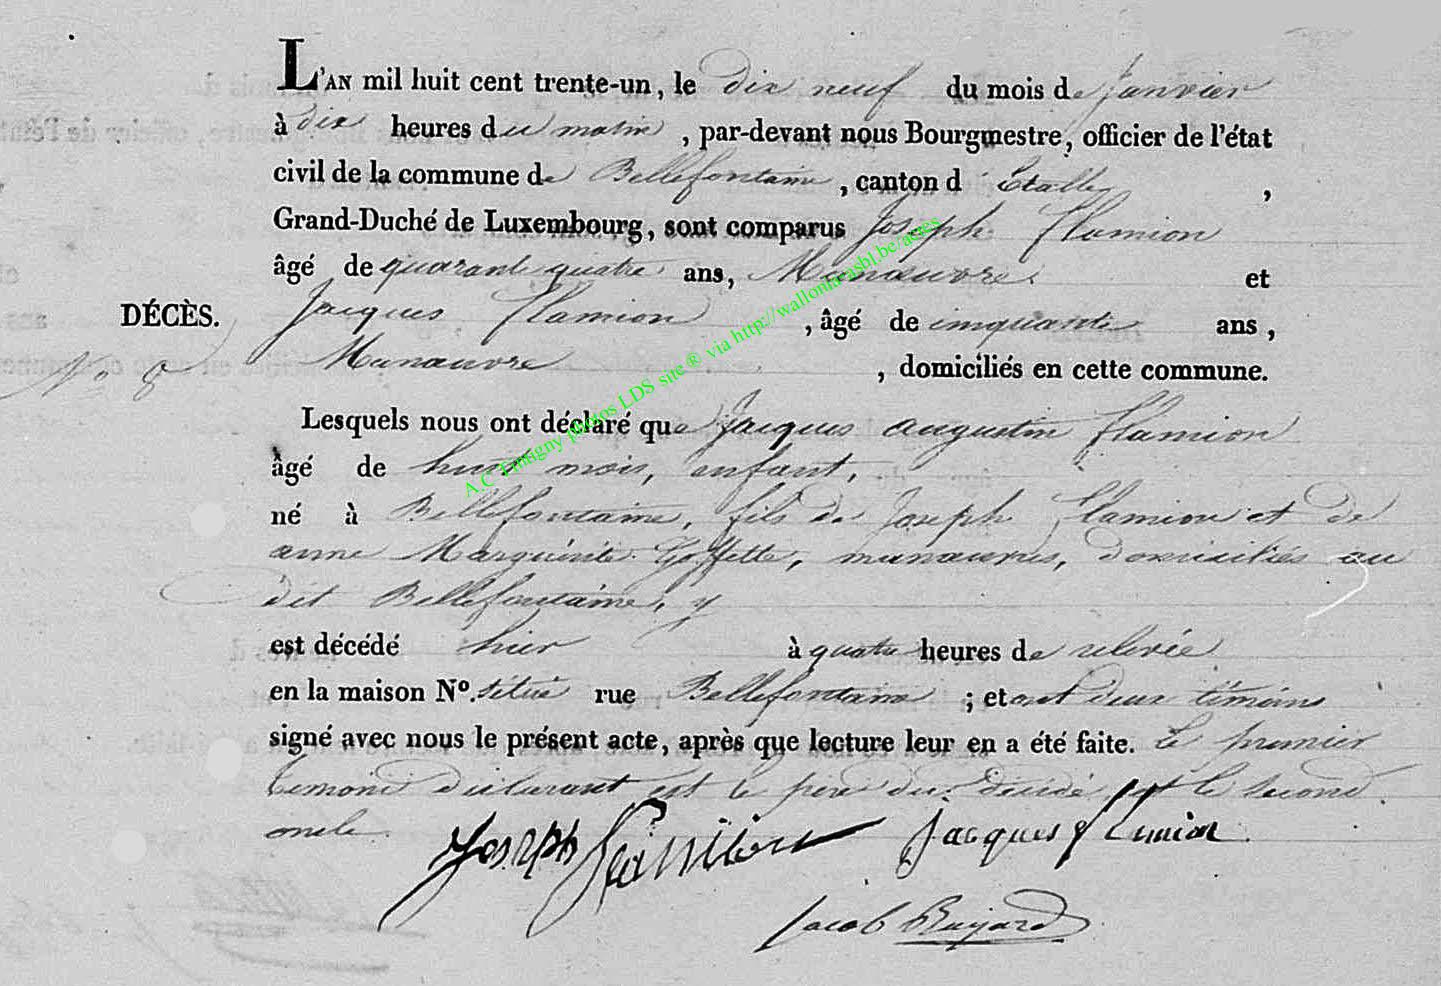 L'AN mil huit cent trente-un, le dix neuf du mois de Janvier
à dix heures du matin, par-devant nous Bourgmestre, officier de l'état
civil de la commune de Bellefontaine, canton d'Etalle,
Grand-Duché de Luxembourg, sont comparus Joseph flamion
âgé de quarante quatre ans, Manœuvre et
DÉCÈS. Jacques flamion, âgé de cinquante ans,
No 8 Manœuvre, domiciliés en cette commune.
Lesquels nous ont déclaré que Jacques augustin flamion
âgé de huit mois, enfant,
né à Bellefontaine, fils de Joseph flamion et de
anne Marguérite Goffette, manœuvres, domiciliés au
dit Bellefontaine, y
est décédé hier à quatre heures de relevée
en la maison No. située rue Bellefontaine ; et ont deux témoins
signé avec nous le présent acte, après que lecture leur en a été faite. Le premier
temoin déclarant est le père du décédé et le second
oncle.
Joseph flamion Jacques flamion
Jacob Buyard
A.C Tintigny photos LDS site ® via http://wallonia-asbl.be/actes